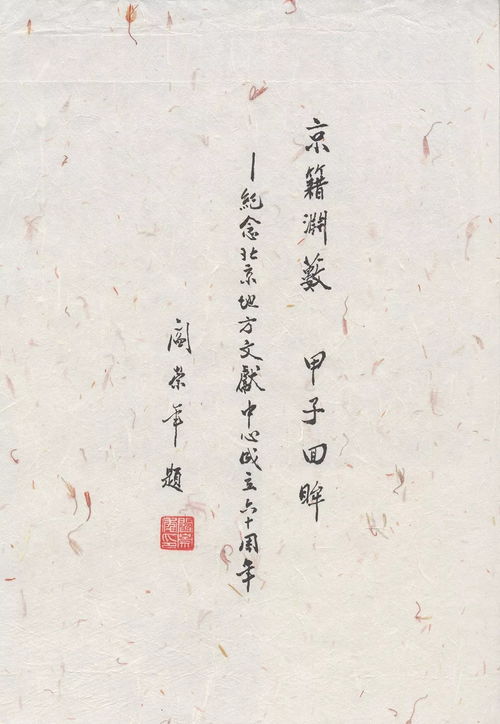 京籍淵藪 甲子回眸
—紀念北京地方文獻中心成立六十周年
閻崇年題